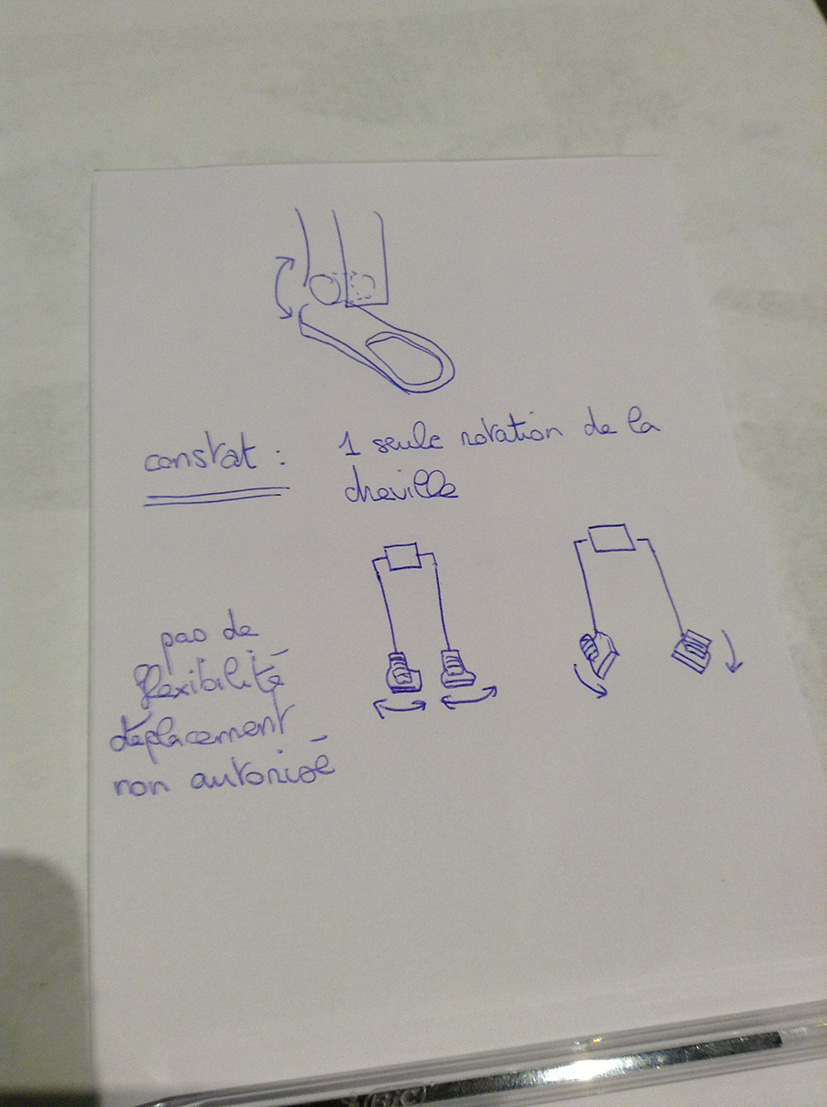 constat : 1 seule rotation de la
cheville
pas de
flexibilité
déplacement
non autorisé
BIC